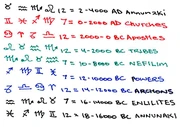 ♉ ♒ ♏ ♌ 12 = 2-4000 AD ANNUNAKI
♊ ♓ ♐ ♍ 7 = 0-2000 AD CHURCHES
♋ ♈ ♑ ♎ 12 = 2000-0 BC APOSTLES
♌ ♉ ♒ ♏ 12 = 4-2000 BC TRIBES
♍ ♊ ♓ ♐ 10 = 8000 BC NEFILIM
♎ ♋ ♈ ♑ 7 = 12-10000 BC POWERS
♏ ♌ ♉ ♒ 12 = 14-12000 BC ARCHONS
♐ ♍ ♊ ♓ 7 = 16-14000 BC ENLILITES
♑ ♎ ♋ ♈ 12 = 18-16000 BC ANNUNAKI